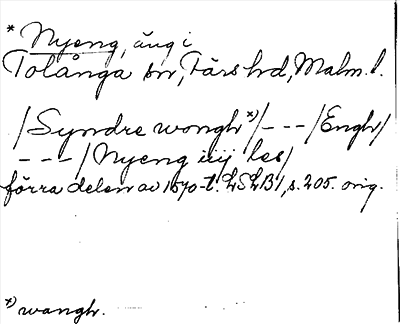 * Nyeng, äng i
Tolånga sn, Färs hd, Malm. l.
/Syndre wongh *)/ - - - /Engh/
- - - /Nyeng iiij les/
förra delen av 1570-t. LSLB 1, s. 205. orig.
*) wangh.